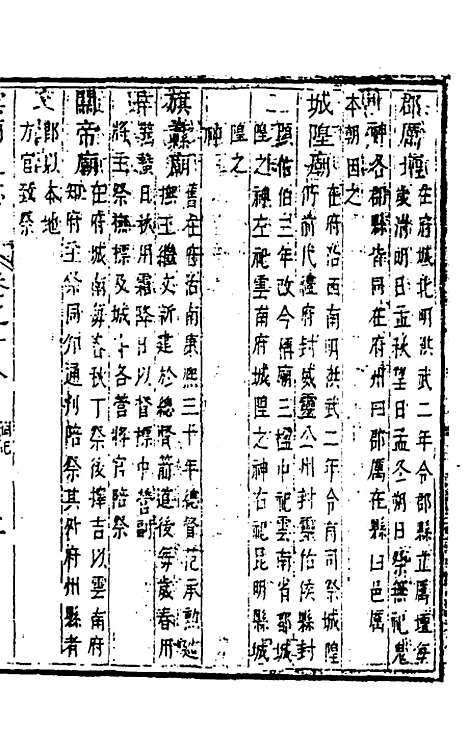 郡厲壇在府城北明洪武二年令郡縣立厲壇每
歲清明日孟秋望日孟冬朔日祭無祀鬼
神各郡縣皆同在府州曰郡厲在縣曰邑厲
本朝因之
城隍廟在府治西南明洪武二年令有司祭城隍
府前代達府封威靈公州封靈佑侯縣封
顯佑伯三年改今稱廟三楹中祀雲南省都城
隍之神左祀雲南府城隍之神右祀昆明縣城
隍之
神
旗纛廟舊在府治南康熙三十年總督范承勲巡
撫王繼文新建於總督箭道後每歲春用
驚蟄日秋用霜降日以督標中營副
將主祭撫標及城守各營將官陪祭
關帝廟在府城南每春秋丁祭後擇吉以雲南府
知府主祭同知通判陪祭其外府州縣者
即以本地
方官致祭